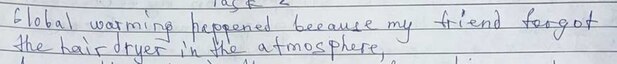 Global warming happened because my friend forgot
the hair dryer in the atmosphere,